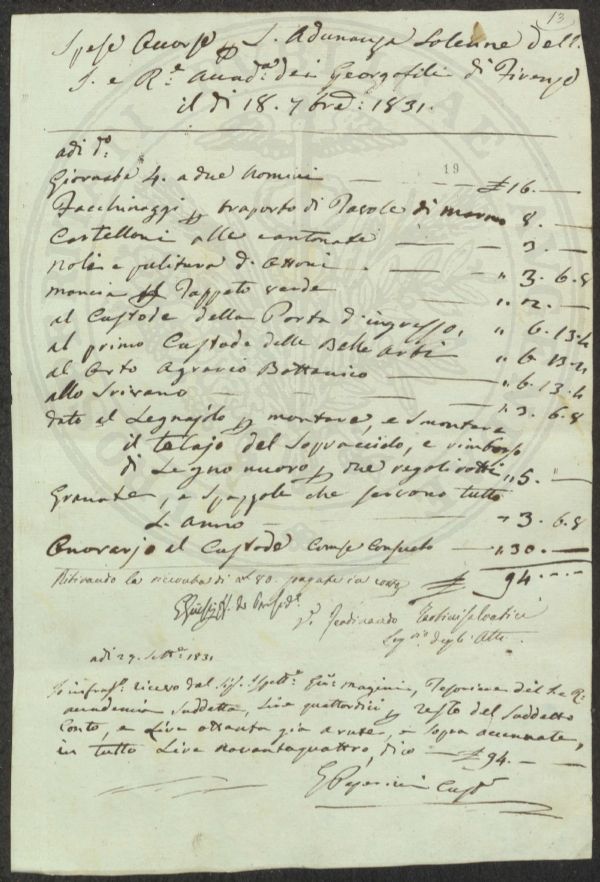 13
Spese Occorse p L'Adunanza Solenne dell
I. e R.e Accad.a dei Georgofili di Firenze
il dì 18. 7bre: 1831.
adi d.o
19
Giornate 4. a due Uomini — — — £ 16. —
Facchinaggi p traporto di Tavole di marmo 8. —
Cartelloni alle cantonate — — — 3. —
Nolo e pulitura d'Ottoni — — " 3. 6. 8
mancia Tappeto verde — — " 2. —
al Custode della Porta d'ingresso, " 6. 13. 4
al primo Custode delle Belle Arti " 6. 13. 4
al Orto Agrario Bottanico — " 6. 13. 4
allo Scrivano — — — " 3. 6. 8
dato al Legnajolo p montare, e Smontare
il telajo del Sopraccielo, e rimborso
di Legno nuovo p due regoli rotti " 5. "
Granate, e Spazzole che servono tutto
L'Anno — — — " 3. 6. 8
Onorario al Custode Come Consueto — " 30. —
Ritirando la ricevuta di £ 80. pagate in £ 94. — —
V. Ferdinando Tartini Salvatici
Seg.rio degli Atti
adi 29. Sett.e 1831
Io infras.o ricevo dal Sig. Ispett.e Gius. Magini, Tesoriere dell' I. e R.
accademia Suddetta, Lire quattordici p resto del Suddetto
Conto, e Lire ottanta già avute, e Sopra accennate,
in tutto Lire novantaquattro, dico — £ 94. — —
Cust.e